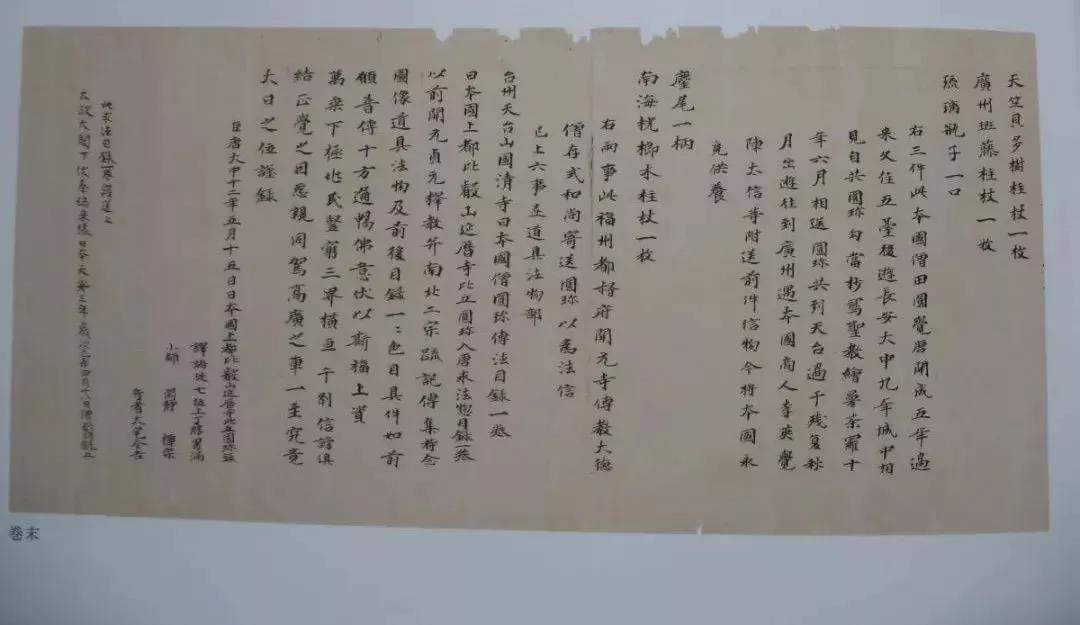 天竺貝多樹柱杖一枚
廣州班藤柱杖一枚
琉璃瓶子一口
右三件此本國僧田圓覺唐開成五年過
來久住五臺後遊長安大中九年城中相
見自共圓珍勾當抄寫聖教繪曼荼羅十
年六月相送圓珍共到天台過于残夏秋
月出遊往到廣州遇本國商人李英覺
陳太信等附送前件信物令將本國永
充供養
麈尾一柄
南海桄榔木柱杖一枚
右兩事此福州都督府開元寺傳教大德
僧存式和尚寄送圓珍以爲法信
已上六事並道具法物部
台州天台山國清寺日本國僧圓珍傳法目録一卷
日本國上都比叡山延曆寺比丘圓珍入唐求法惣目録一卷
以前開元貞元釋教并南北二宗䟽記傳集持念
圖像道具法物及前後目録一一色目具件如前
願普傳十方通暢佛意伏以斯福上資
萬乘下極地民竪窮三界橫亘十刹信謗俱
結正覺之因怨親同駕高廣之車一至究竟
大日之位謹録
巨唐大中十二年五月十五日日本國上都比叡山延曆寺比丘圓珍録
譯語從七位上丁勝男滿
小師 閑靜
行者大
此求法目録一卷謹進上
太政大閤下伏奉 日本天安三年歲次己卯四月十八日僧圓珍
卷末